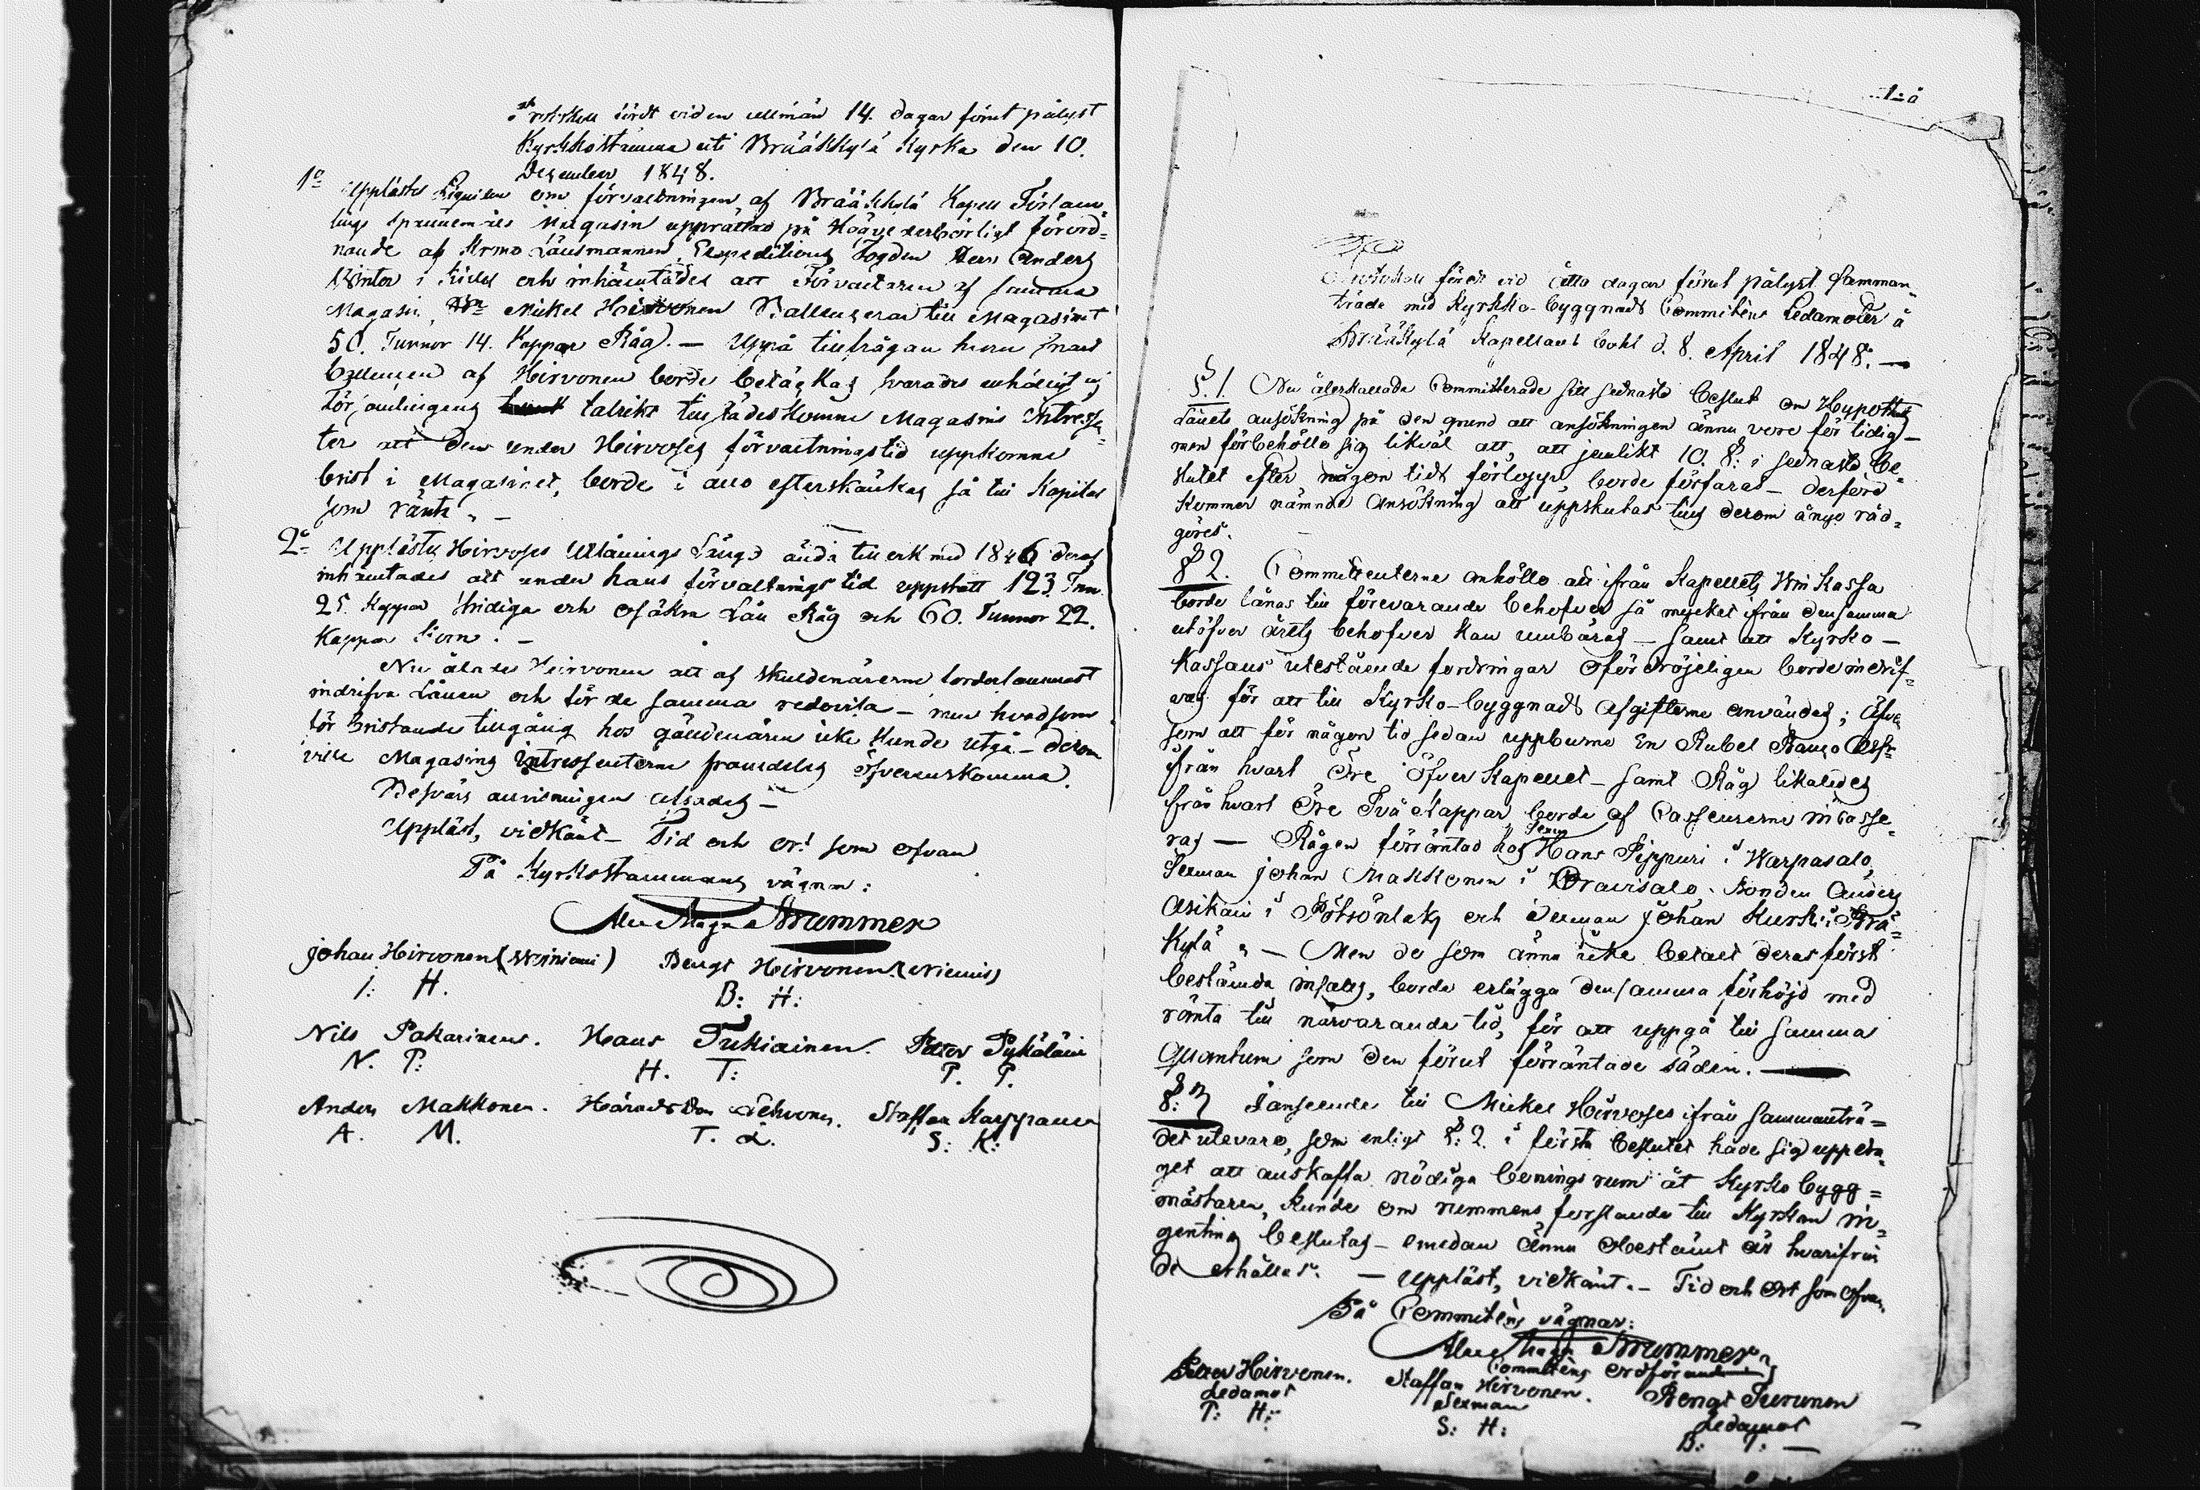 Protokoll fördt vid en allmän 14. dagar förut pålyst
Kyrkkostämma uti Brääkkylä Kyrka den 10.
December 1848.
1o Upplästes Liquiden om förvaltningen af Brääkkylä Kapell Försam-
lings Spannemåls Magasin upprättad på Högvederbörligt förord-
nande af Krono Länsmannen, Expeditions Fogden Herr Anders
Winter i Kides och inhämtades att Förvaltaren af samma
Magasin, Mickel Hirvonen Ballancerar till Magasinet
50. Tunnor 14. Kappar Råg. — Uppå tillfrågan huru snart
af Hirvonen borde betäckas svarades enhälligt af
Församlingens talrikt tillstädeskomne Magasins Intressen-
ter att den under Hirvoses förvaltningstid uppkomne
brist i Magasinet, borde i allo efterskänkas så till Kapital
som ränta „ —
2o Upplästes Hirvoses Utlånings Längd ända till och med 1846 deraf
inhämtades att under hans förvaltnings tid uppstått 123 Tnn.
25. Kappar tvidiga och osäkra Lån Råg och 60. Tunnor 22.
Kappar Korn. —
Nu ålades Hirvonen att af skuldenärerne fordersammast
indrifva Lånen och för de samma redovisa — men hvad som
för bristande tillgång hos gäldenären icke kunde utgå — derom
ville Magasins Intressenterne framdeles öfverenskomma.
Besvärs anvisningen afsades —
Uppläst, vidkänt — Tid och ort som ofvan
På Kyrkostämmans vägnar:
Alex Magn Brummer
Johan Hirvonen (Niiniemi) Bengt Hirvonen (Niemis)
J: H. B: H:
Nils Pakarinen. Hans Tukiainen. Petter Pykäläin
N. P: H. T: P. P.
Anders Makkonen. Häradsdom Lehvonen. Staffan Karppanen
A. M. T. L. S: K:
Protokoll fördt vid åtta dagar förut pålyst samman-
träde med Kyrkko-byggnads Committéns Ledamöter å
Brääkylä Kapellans bohl d. 8. April 1848. —
§ 1. Nu återkallade Committerade sitt sednaste beslut om Hypotheks
Lånets ansökning på den grund att ansökningen ännu vore för tidig —
men förbehöllo sig likväl att, att jemlikt 10. §: i sednaste be-
slutet efter någon tids förlopp, borde förfaras — derföre
kommer nämnde ansökning att uppskutas tills derom ånyo råd-
göres.
§ 2. Committenterne anhöllo att ifrån Kapellets Win Kassa
borde lånas till förevarande behofver så mycket ifrån densamma
utöfver årets behofver kan umbäras — samt att Kyrko —
Kassans utestående fordringar ofördröjeligen borde indrif-
vas för att till Kyrko-byggnads afgifterne användas; äfven
som att för någon tid sedan uppburne En Rubel Banco Ass:
ifrån hvart Öre öfver Kapellet — samt Råg likaledes
från hvart Öre Två Kappar, borde af Casseurerne incasse-
ras — Rågen förräntad hos Sexm Hans Pippuri i Warpasalo,
Sexman Johan Makkonen i Oravisalo, Bonden Anders
Asikain i Pötsönlaks och Sexman Johan Kurki i Brä-
kylä „ — Men de som ännu icke betalt deras först
bestämda insats, borde erlägga densamma förhöjd med
ränta till närvarande tid, för att uppgå till samma
Quantum som den förut förräntade säden. —
§: 3 I anseende till Mickel Hirvoses ifrån sammanträ-
det utevaro, som enligt §: 2. i första beslutet hade sig uppeta-
get att anskaffa nödiga boningsrum åt Kyrko bygg-
mästaren, kunde om rummens till Kyrkan in-
genting beslutas — emedan ännu obestämt är hvarifrån
de erhållas. — Uppläst, vidkänt. — Tid och Ort som ofvan
På Committéns vägnar:
Alex Magn Brummer
Committéns Ordförande
Petter Hirvonen. Staffan Hirvonen. Bengt Turunen
Ledamot Sexman Ledamot
P: H: S: H: B: T: —